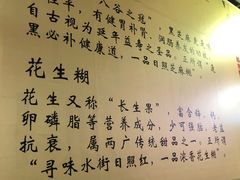 八谷之冠”，黑芝麻
有健胃补肾、润肠养发的
古视为延年益寿之圣品。正所谓
黑必补健康道，一品日照芝麻糊
花生糊
花生又称“长生果”，富含锌、钙、
卵磷脂等营养成分，少可强脑，老益
抗衰，属两广传统甜品之一。正所谓
“寻味水街日照红，一品浓香花生糊”。